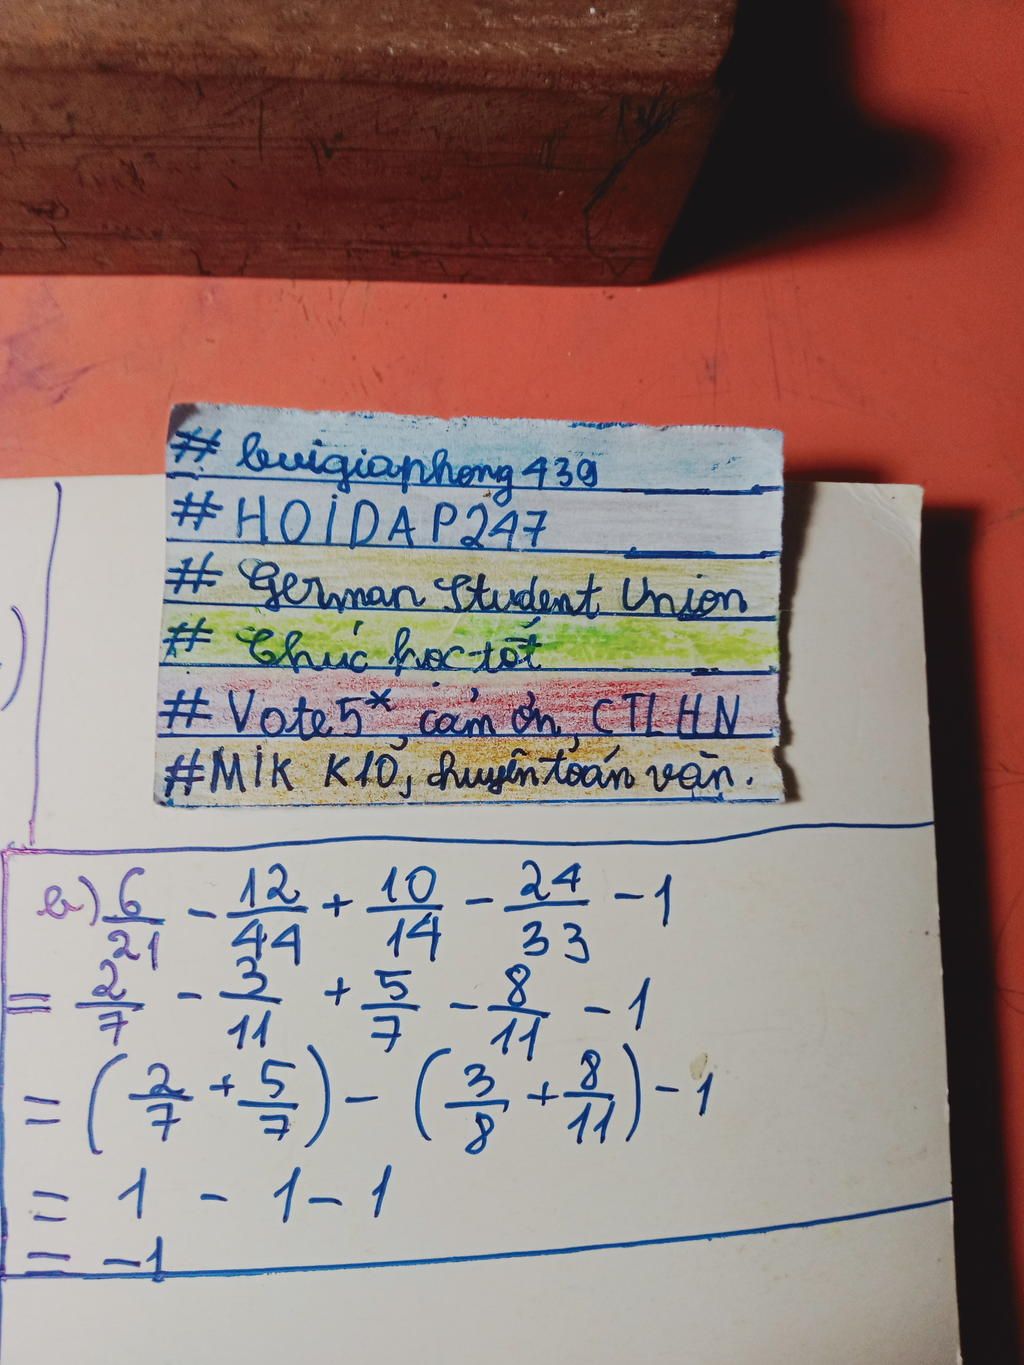 # buigiaphong439
# HOIDAP247
# German Student Union
# Chúc học tốt
# Vote 5*, cảm ơn, CTLHN
#MIK K10, chuyên toán văn.
b) 6/21 - 12/44 + 10/14 - 24/33 - 1
= 2/7 - 3/11 + 5/7 - 8/11 - 1
= (2/7 + 5/7) - (3/8 + 8/11) - 1
= 1 - 1 - 1
= -1